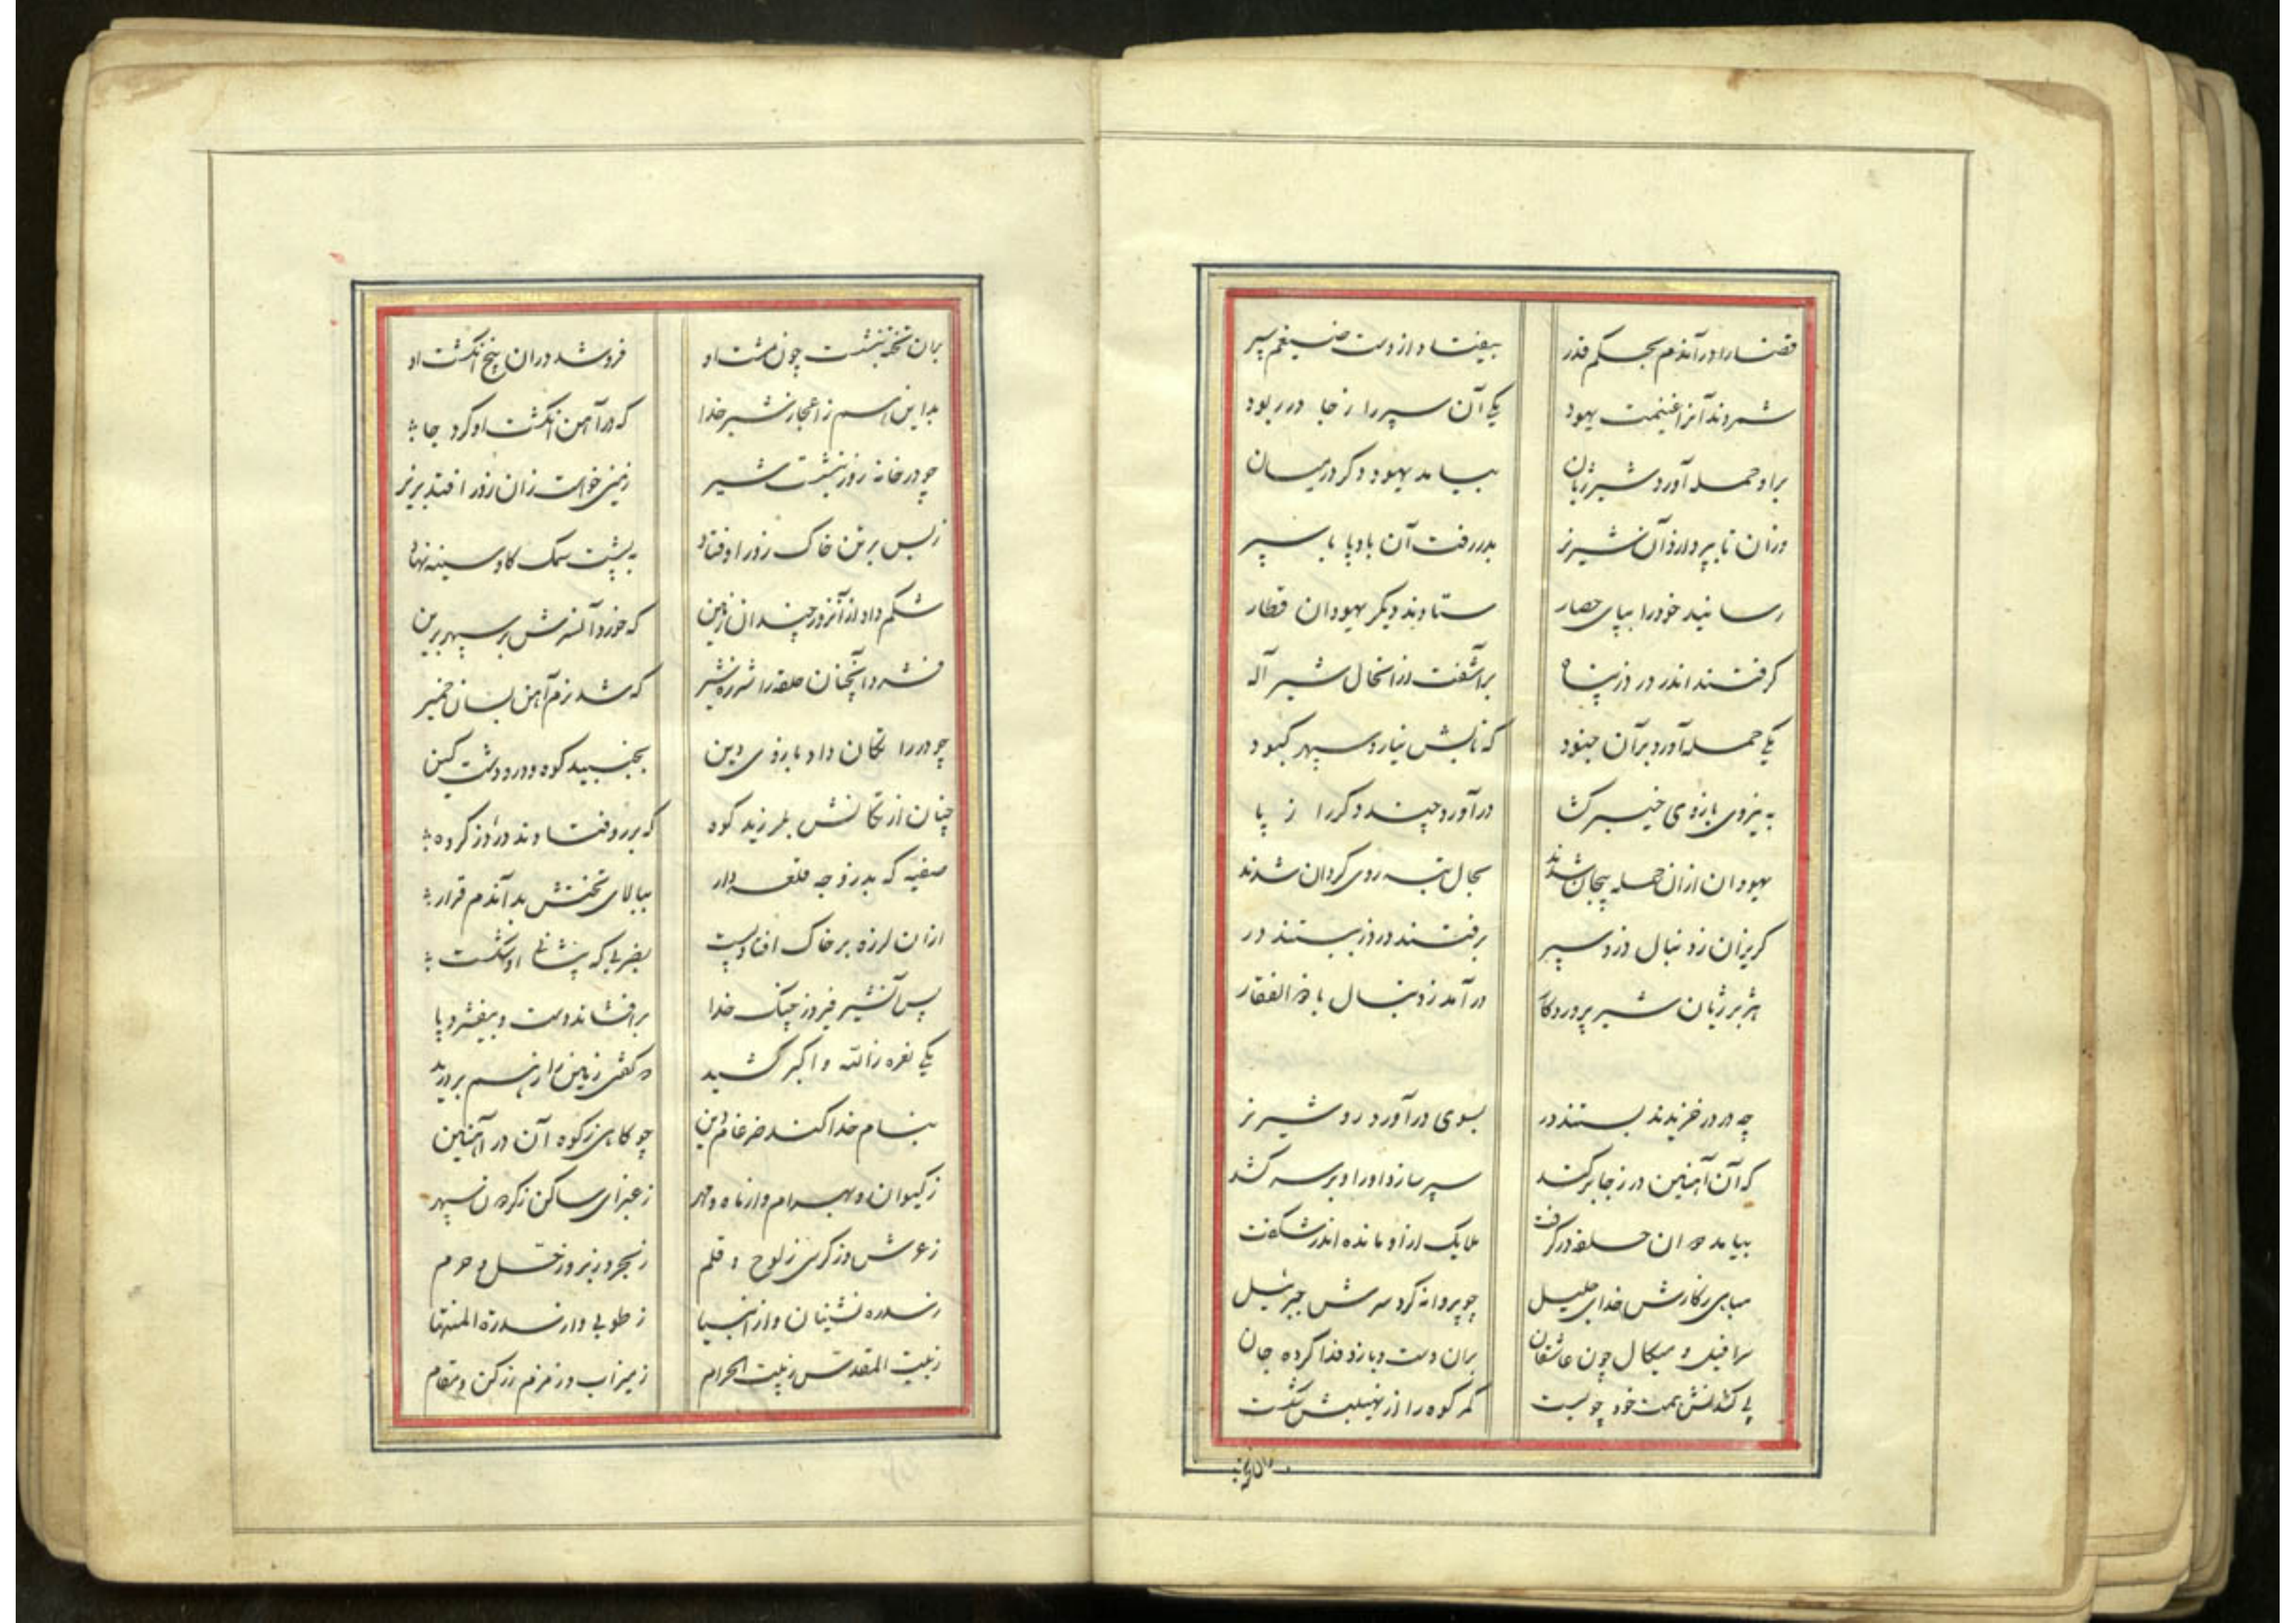 قضا را در آندم بحکم قدر بیفتاد از دست ضیغم سپر
شمردند آنرا غنیمت یهود یکی آن سپر را ز جا در ربود
بر او حمله آورد شیر ژیان بیامد یهود دگر در میان
در آن تا بپردازد آن شیر نر بدر رفت آن بادپا با سپر
رسانید خود را بپای حصار ستادند دیگر یهودان قطار
گرفتند اندر در دز پناه برآشفت از انحال شیر آله
یکی حمله آورد بر آن جنود که تابش نیارد سپهر کبود
به نیروی بازوی خیبر کشا درآورد چند دگر را ز پا
یهودان ازان حمله پیچان شدند بحال تبه روی گردان شدند
گریزان ز دنبال دزد سپر برفتند در دز ببستند در
هژبر ژیان شیر پروردگار درآمد ز دنبال با ذوالفقار
چه در در خزیدند بستند در بسوی در آورد رو شیر نر
که آن آهنین در ز جا بر کند سپر سازد او را و بر سر کشد
بیامد در ان حلقه در گرفت ملایک از او مانده اندر شگفت
مباهی بکارش خدای جلیل چو پروانه گرد سرش جبرئیل
سرافیل و میکال چون عاشقان بران دست و بازو فدا کرده جان
پی کندنش همت خود چو بست کمر کوه را از نهیبش شکست
بران تخته
بران تخته بنشست چون مشت او فرو شد دران پنج انگشت او
بد این هم ز اعجاز شیر خدا که در آهن انگشت او کرد جا
چو در خانه زور بنشست شیر زمین خواست زان زور افتد بزیر
ز بس بر تن خاک زور اوفتاد به پشت سمک گاو سینه نهاد
شکم داد از آنزور چندان زمین که خورد آنسرش بر سپهر برین
فشرد آنچنان حلقه را شرزه شیر که شد نرم آهن بسان خمیر
چو در را تکان داد بازوی دین بجنبید کوه و در و دشت کین
چنان از تکانش بلرزید کوه که بر رو فتادند در دز گروه
صفیه که بد زوجه قلعه دار ببالای تختش بد آندم قرار
ازان لرزه بر خاک افتاد پست بضربی که پیشانی او شکست
پس آنشیر فیروز جنگ خدا برافشاند دست و بیفشرد پا
یکی نعره ز الله و اکبر کشید تو گفتی زمین را ز هم بر درید
بنام خدا کند ضرغام دین چو کاهی ز کوه آن در آهنین
ز کیوان و بهرام و از ماه و مهر ز غبرای ساکن ز گردن سپهر
ز عرش و ز کرسی ز لوح و قلم ز بحر و ز بر وز حل و حرم
ز سدره نشینان و از انبیا ز طوبی و از سدرة المنتها
ز بیت المقدس ز بیت الحرام ز میزاب و ز زمزم ز رکن و مقام